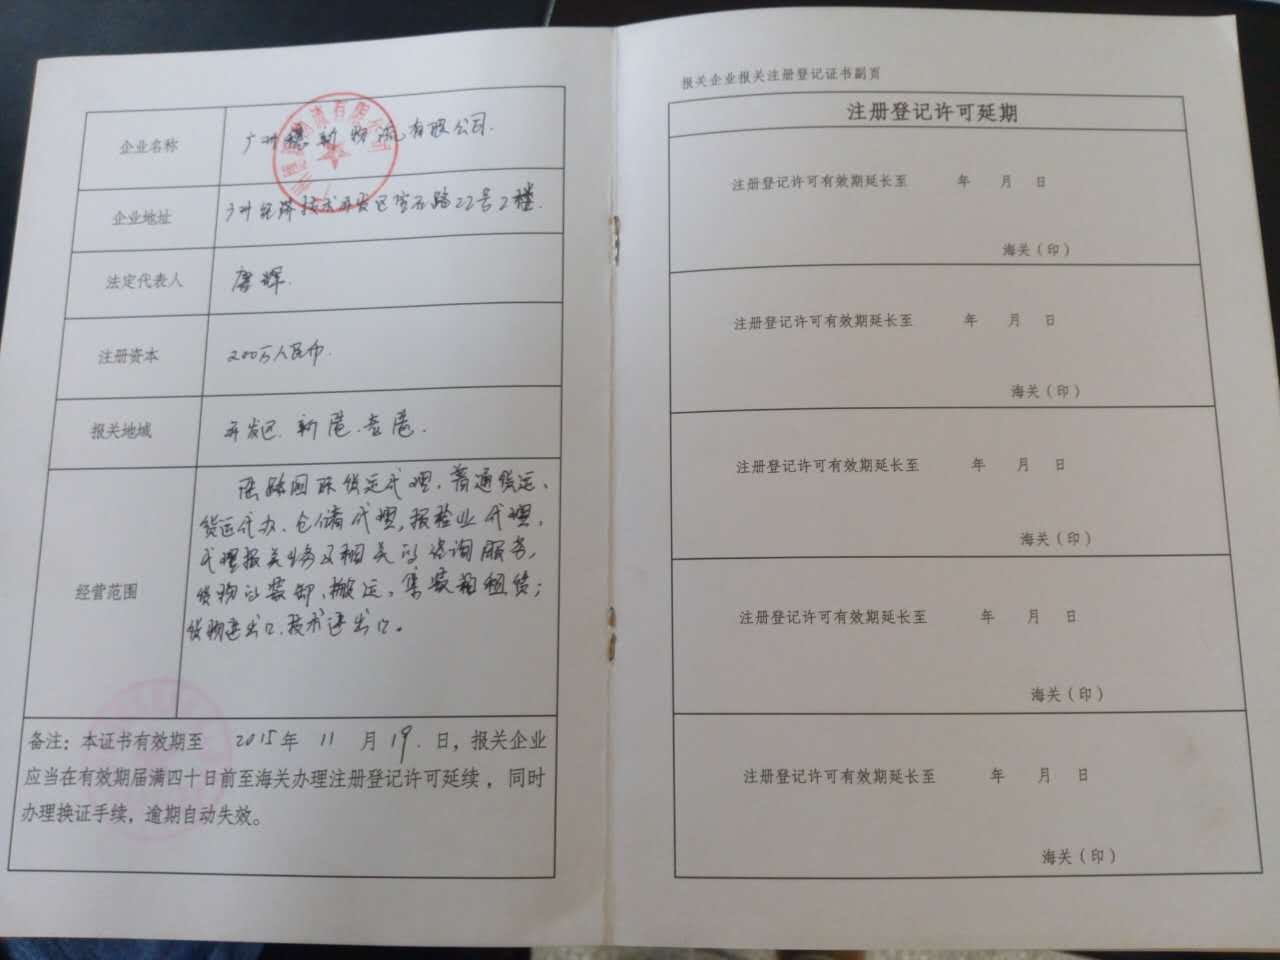 企业名称
广州穗新物流有限公司.
企业地址
广州经济技术开发区宝石路22号2楼.
法定代表人
唐辉.
注册资本
200万人民币.
报关地域
开发区.新港.老港.
经营范围
陆路国际货运代理.普通货运、
货运代办、仓储代理,报检业代理,
代理报关业务及相关的咨询服务,
货物的装卸、搬运、集装箱租赁;
货物进出口、技术进出口。
备注：本证书有效期至 2015年 11 月 19. 日，报关企业
应当在有效期届满四十日前至海关办理注册登记许可延续，同时
办理换证手续，逾期自动失效。
报关企业报关注册登记证书副页
注册登记许可延期
注册登记许可有效期延长至 年 月 日
海关（印）
注册登记许可有效期延长至 年 月 日
海关（印）
注册登记许可有效期延长至 年 月 日
海关（印）
注册登记许可有效期延长至 年 月 日
海关（印）
注册登记许可有效期延长至 年 月 日
海关（印）